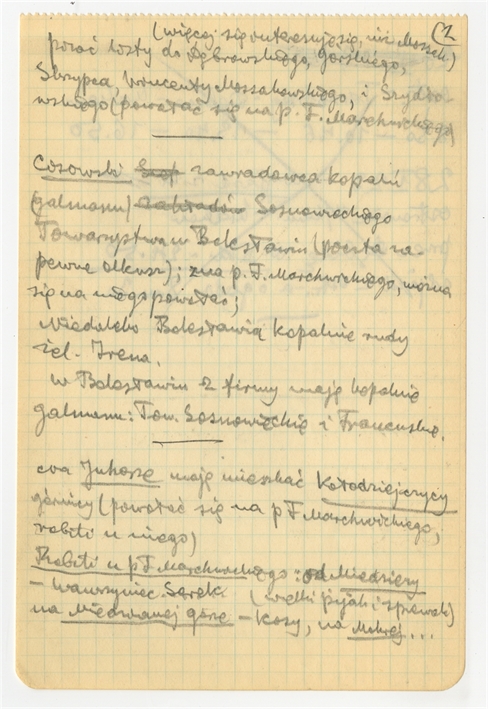 (1
(więcej się interesuje się, niż Mossak)
pisać listy do Dąbrowskiego, Górskiego,
Skrypca, Wincenty Mossakowskiego, i Szydło-
wskiego (powołać się na p. F. Marchwickiego)
Cisowski zawiadowca kopalń
(galmanu) Sosnowieckiego
Towarzystwa w Bolesławiu (poczta za-
pewne Olkusz); zna p. F. Marchwickiego, można
się na niego powołać;
Niedaleko Bolesławia kopalnie rudy
żel. Irena.
w Bolesławiu 2 firmy mają kopalnię
galmanu: Tow. Sosnowieckie i Francuskie.
mają mieszkać Kołodziejczycy
górnicy (powołać się na p F Marchwickiego,
robili u niego)
Robili u p F. Marchwickiego: od Miedziany
- Wawrzyniec Serek. (wielki pijak i )
na Miedzianej górze - Kosy, na ...